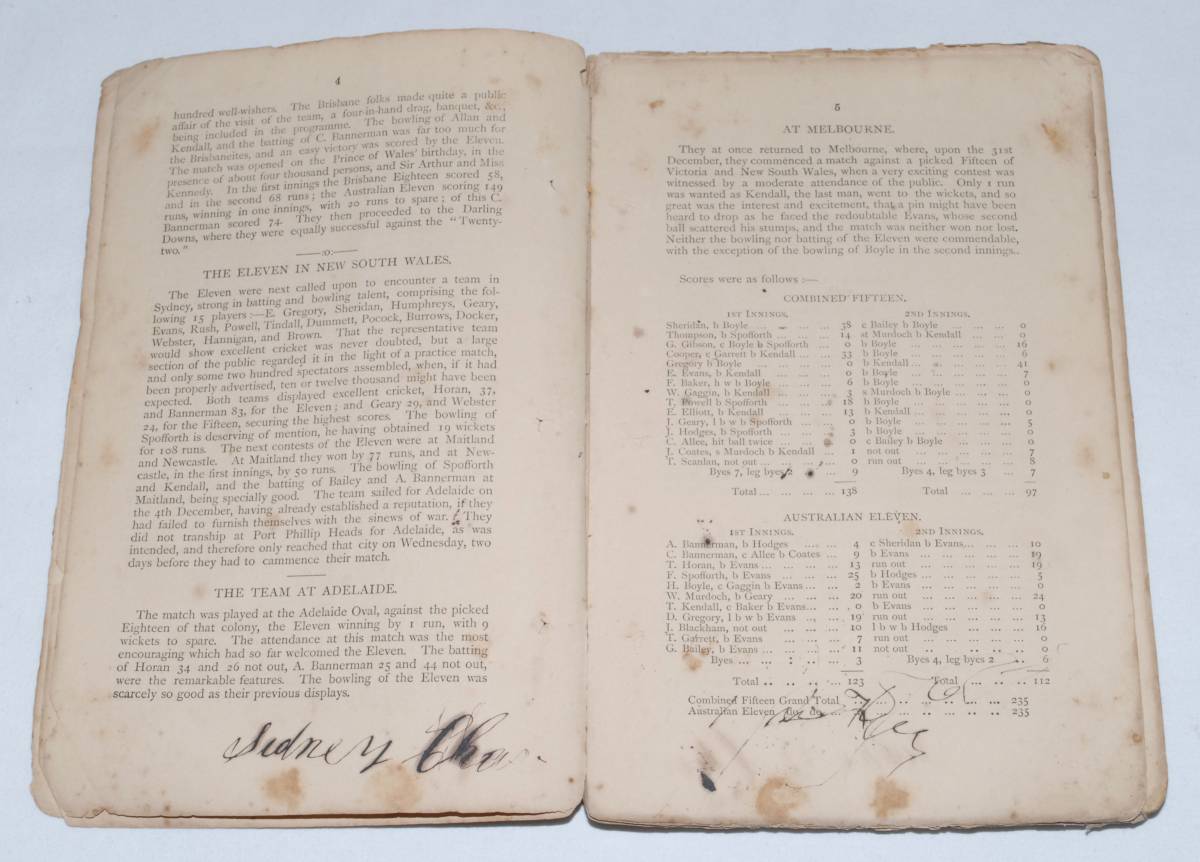 4
hundred well-wishers. The Brisbane folks made quite a public
affair of the visit of the team, a four-in-hand drag, banquet, &c.,
being included in the programme. The bowling of Allan and
Kendall, and the batting of C. Bannerman was far too much for
the Brisbaneites, and an easy victory was scored by the Eleven.
The match was opened on the Prince of Wales' birthday, in the
presence of about four thousand persons, and Sir Arthur and Miss
Kennedy. In the first innings the Brisbane Eighteen scored 58,
and in the second 68 runs; the Australian Eleven scoring 149
runs, winning in one innings, with 20 runs to spare; of this C.
Bannerman scored 74. They then proceeded to the Darling
Downs, where they were equally successful against the "Twenty-
two."
THE ELEVEN IN NEW SOUTH WALES.
The Eleven were next called upon to encounter a team in
Sydney, strong in batting and bowling talent, comprising the fol-
lowing 15 players:—E. Gregory, Sheridan, Humphreys, Geary,
Evans, Rush, Powell, Tindall, Dummett, Pocock, Burrows, Docker,
Webster, Hannigan, and Brown. That the representative team
would show excellent cricket was never doubted, but a large
section of the public regarded it in the light of a practice match,
and only some two hundred spectators assembled, when, if it had
been properly advertised, ten or twelve thousand might have been
expected. Both teams displayed excellent cricket, Horan, 37,
and Bannerman 83, for the Eleven; and Geary 29, and Webster
24, for the Fifteen, securing the highest scores. The bowling of
Spofforth is deserving of mention, he having obtained 19 wickets
for 108 runs. The next contests of the Eleven were at Maitland
and Newcastle. At Maitland they won by 77 runs, and at New-
castle, in the first innings, by 50 runs. The bowling of Spofforth
and Kendall, and the batting of Bailey and A. Bannerman at
Maitland, being specially good. The team sailed for Adelaide on
the 4th December, having already established a reputation, if they
had failed to furnish themselves with the sinews of war. They
did not tranship at Port Phillip Heads for Adelaide, as was
intended, and therefore only reached that city on Wednesday, two
days before they had to cammence their match.
THE TEAM AT ADELAIDE.
The match was played at the Adelaide Oval, against the picked
Eighteen of that colony, the Eleven winning by 1 run, with 9
wickets to spare. The attendance at this match was the most
encouraging which had so far welcomed the Eleven. The batting
of Horan 34 and 26 not out, A. Bannerman 25 and 44 not out,
were the remarkable features. The bowling of the Eleven was
scarcely so good as their previous displays.
Sidney
5
AT MELBOURNE.
They at once returned to Melbourne, where, upon the 31st
December, they commenced a match against a picked Fifteen of
Victoria and New South Wales, when a very exciting contest was
witnessed by a moderate attendance of the public. Only 1 run
was wanted as Kendall, the last man, went to the wickets, and so
great was the interest and excitement, that a pin might have been
heard to drop as he faced the redoubtable Evans, whose second
ball scattered his stumps, and the match was neither won not lost.
Neither the bowling nor batting of the Eleven were commendable,
with the exception of the bowling of Boyle in the second innings..
Scores were as follows :—
COMBINED FIFTEEN.
1ST INNINGS. 2ND INNINGS.
Sheridan, b Boyle ... ... ... ... 38 c Bailey b Boyle ... ... ... 0
Thompson, b Spofforth ... ... ... 14 st Murdoch b Kendall ... ... 0
G. Gibson, c Boyle b Spofforth ... 0 b Boyle ... ... ... ... ... 16
Cooper, c Garrett b Kendall ... ... 33 b Boyle ... ... ... ... ... 6
Gregory b Boyle ... ... ... ... 0 b Kendall ... ... ... ... ... 41
E. Evans, b Kendall ... ... ... 0 b Boyle ... ... ... ... ... 7
F. Baker, h w b Boyle ... ... ... 6 b Boyle ... ... ... ... ... 0
W. Gaggin, b Kendall ... ... ... 3 s Murdoch b Boyle ... ... ... 0
T. Powell b Spofforth ... ... ... 18 b Boyle ... ... ... ... ... 0
E. Elliott, b Kendall ... ... ... 13 b Kendall ... ... ... ... ... 0
J. Geary, l b w b Spofforth ... ... 0 b Boyle ... ... ... ... ... 5
J. Hodges, b Spofforth ... ... ... 3 b Boyle ... ... ... ... ... 0
C. Allee, hit ball twice ... ... ... 0 c Bailey b Boyle ... ... ... 0
J. Coates, s Murdoch b Kendall ... 1 not out ... ... ... ... ... 7
T. Scanlan, not out ... ... ... ... 0 run out ... ... ... ... ... 8
Byes 7, leg byes 2 ... 9 Byes 4, leg byes 3 ... 7
Total ... ... ... ... 138 Total ... ... ... 97
AUSTRALIAN ELEVEN.
1ST INNINGS. 2ND INNINGS.
A. Bannerman, b Hodges ... ... 4 c Sheridan b Evans... ... ... 10
C. Bannerman, c Allee b Coates ... 9 b Evans ... ... ... ... ... 19
T. Horan, b Evans ... ... ... ... 13 run out ... ... ... ... ... 19
F. Spofforth, b Evans ... ... ... 25 b Hodges ... ... ... ... ... 5
H. Boyle, c Gaggin b Evans ... ... 2 b Evans ... ... ... ... ... 0
W. Murdoch, b Geary ... ... ... 20 run out ... ... ... ... ... 24
T. Kendall, c Baker b Evans... ... 0 b Evans ... ... ... ... ... 0
D. Gregory, l b w b Evans ... ... 19 run out ... ... ... ... ... 13
J. Blackham, not out ... ... ... 10 l b w b Hodges ... ... ... 16
T. Garrett, b Evans ... ... ... 7 run out ... ... ... ... ... 0
G. Bailey, b Evans ... ... ... ... 11 not out ... ... ... ... ... 0
Byes ... ... ... ... 3 Byes 4, leg byes 2 ... 6
Total ... ... ... ... 123 Total ... ... ... 112
Combined Fifteen Grand Total ... ... ... ... ... ... 235
Australian Eleven do. do. ... ... ... ... ... ... 235